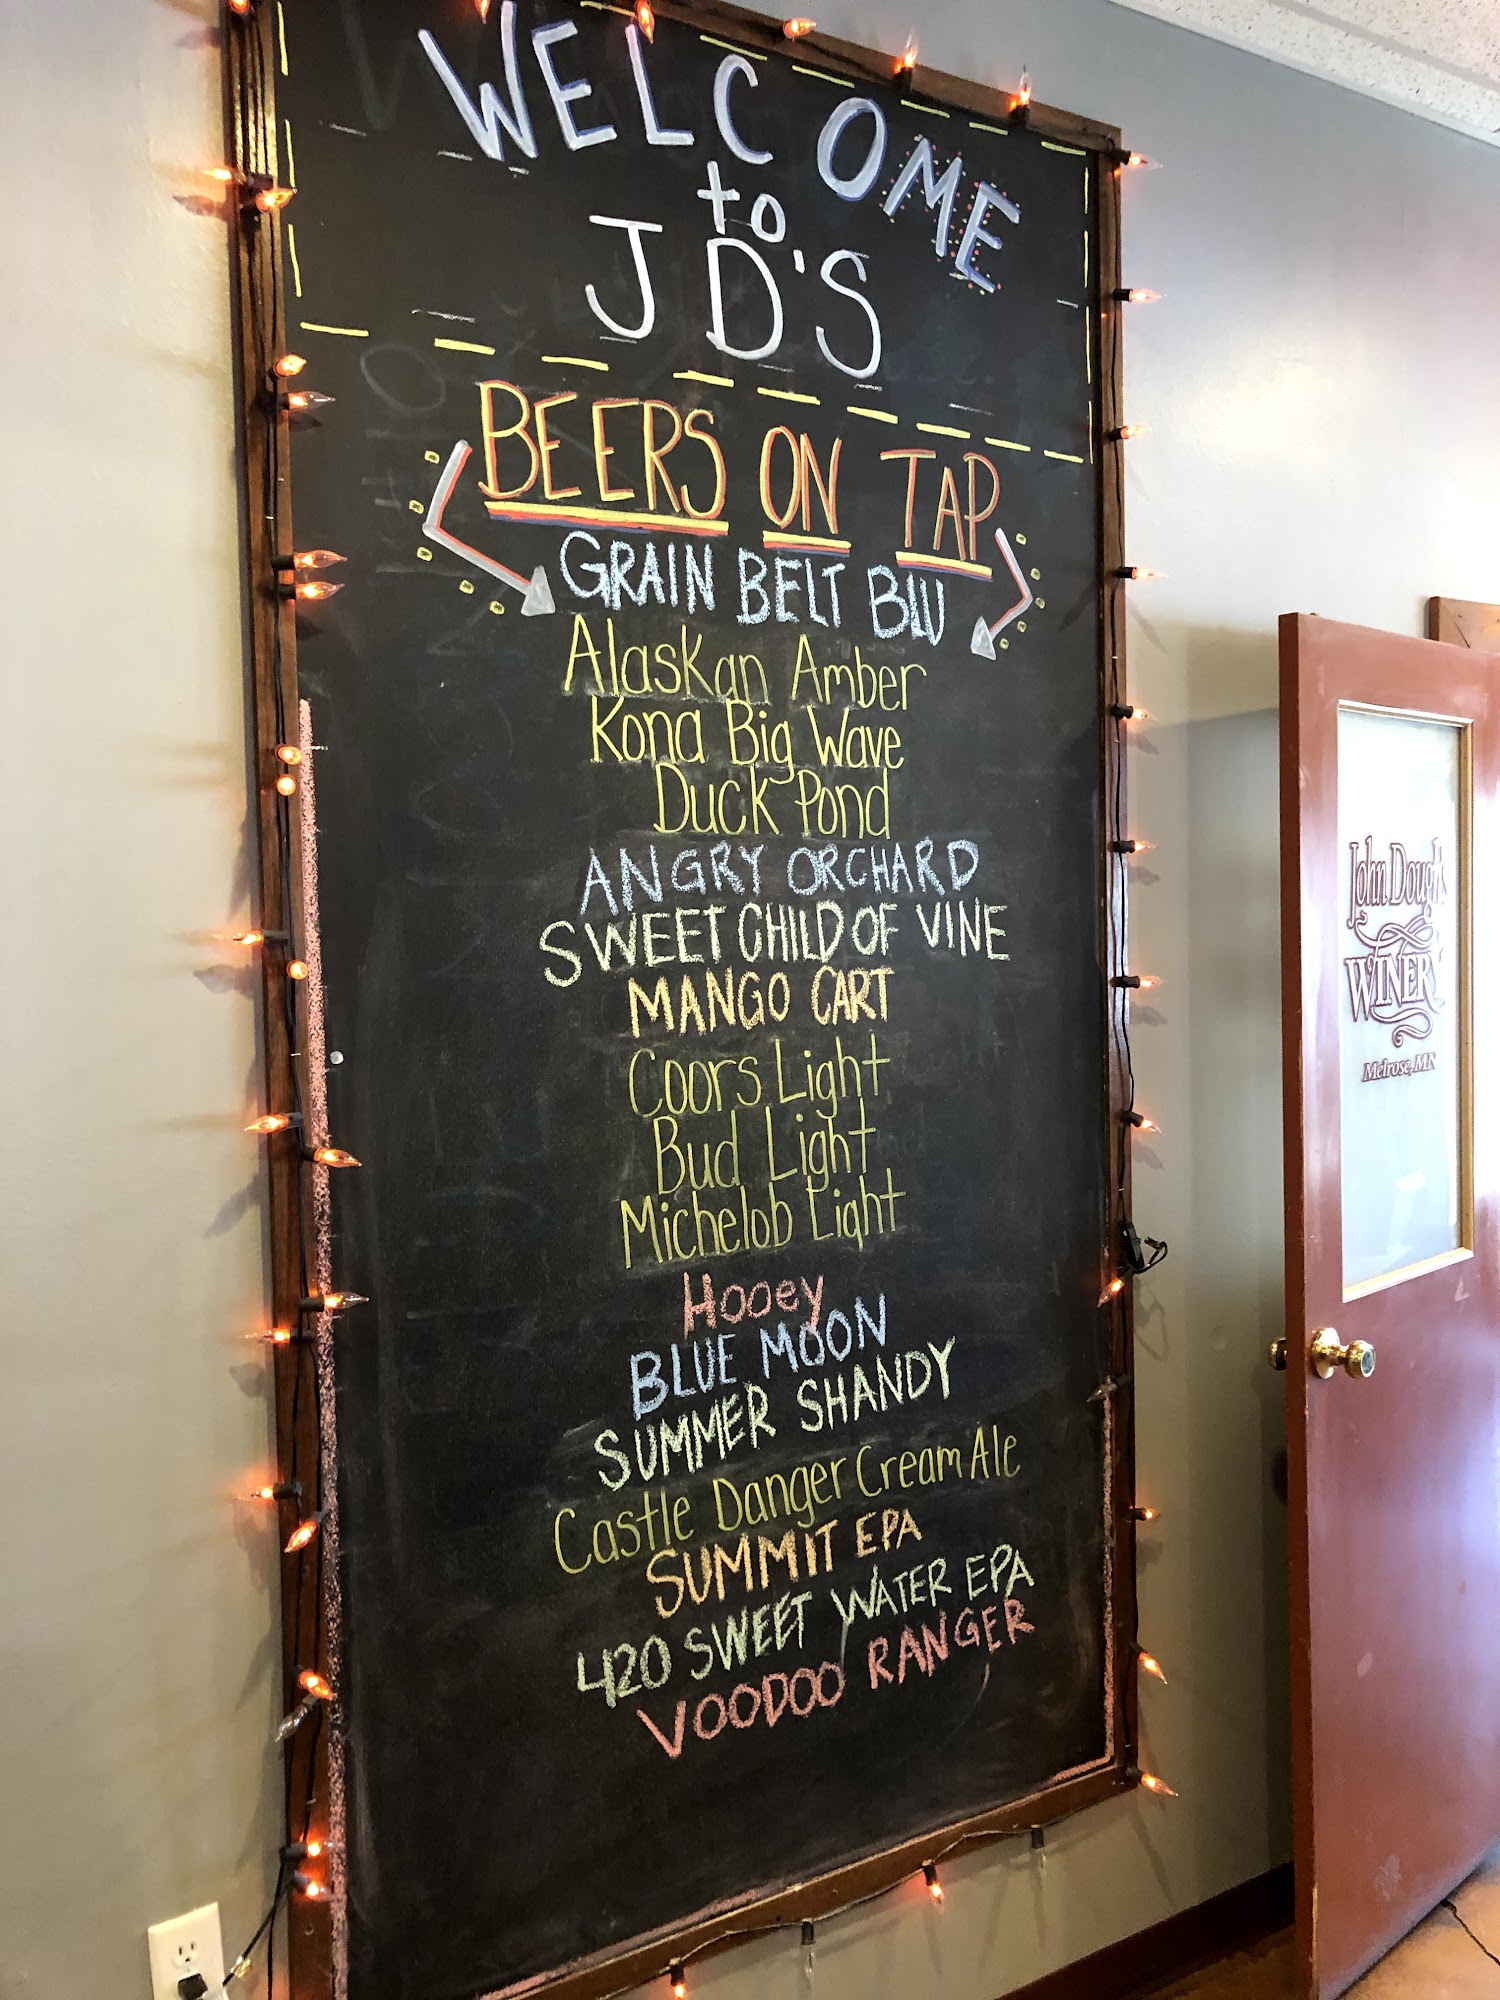 WELCOME
to
JD'S
BEERS ON TAP
GRAIN BELT BLU
Alaskan Amber
Kona Big Wave
Duck Pond
ANGRY ORCHARD
SWEET CHILD OF VINE
MANGO CART
Coors Light
Bud Light
Michelob Light
Hooey
BLUE MOON
SUMMER SHANDY
Castle Danger Cream Ale
SUMMIT EPA
420 SWEET WATER EPA
VOODOO RANGER
John Dough's
WINERY
Melrose, MN